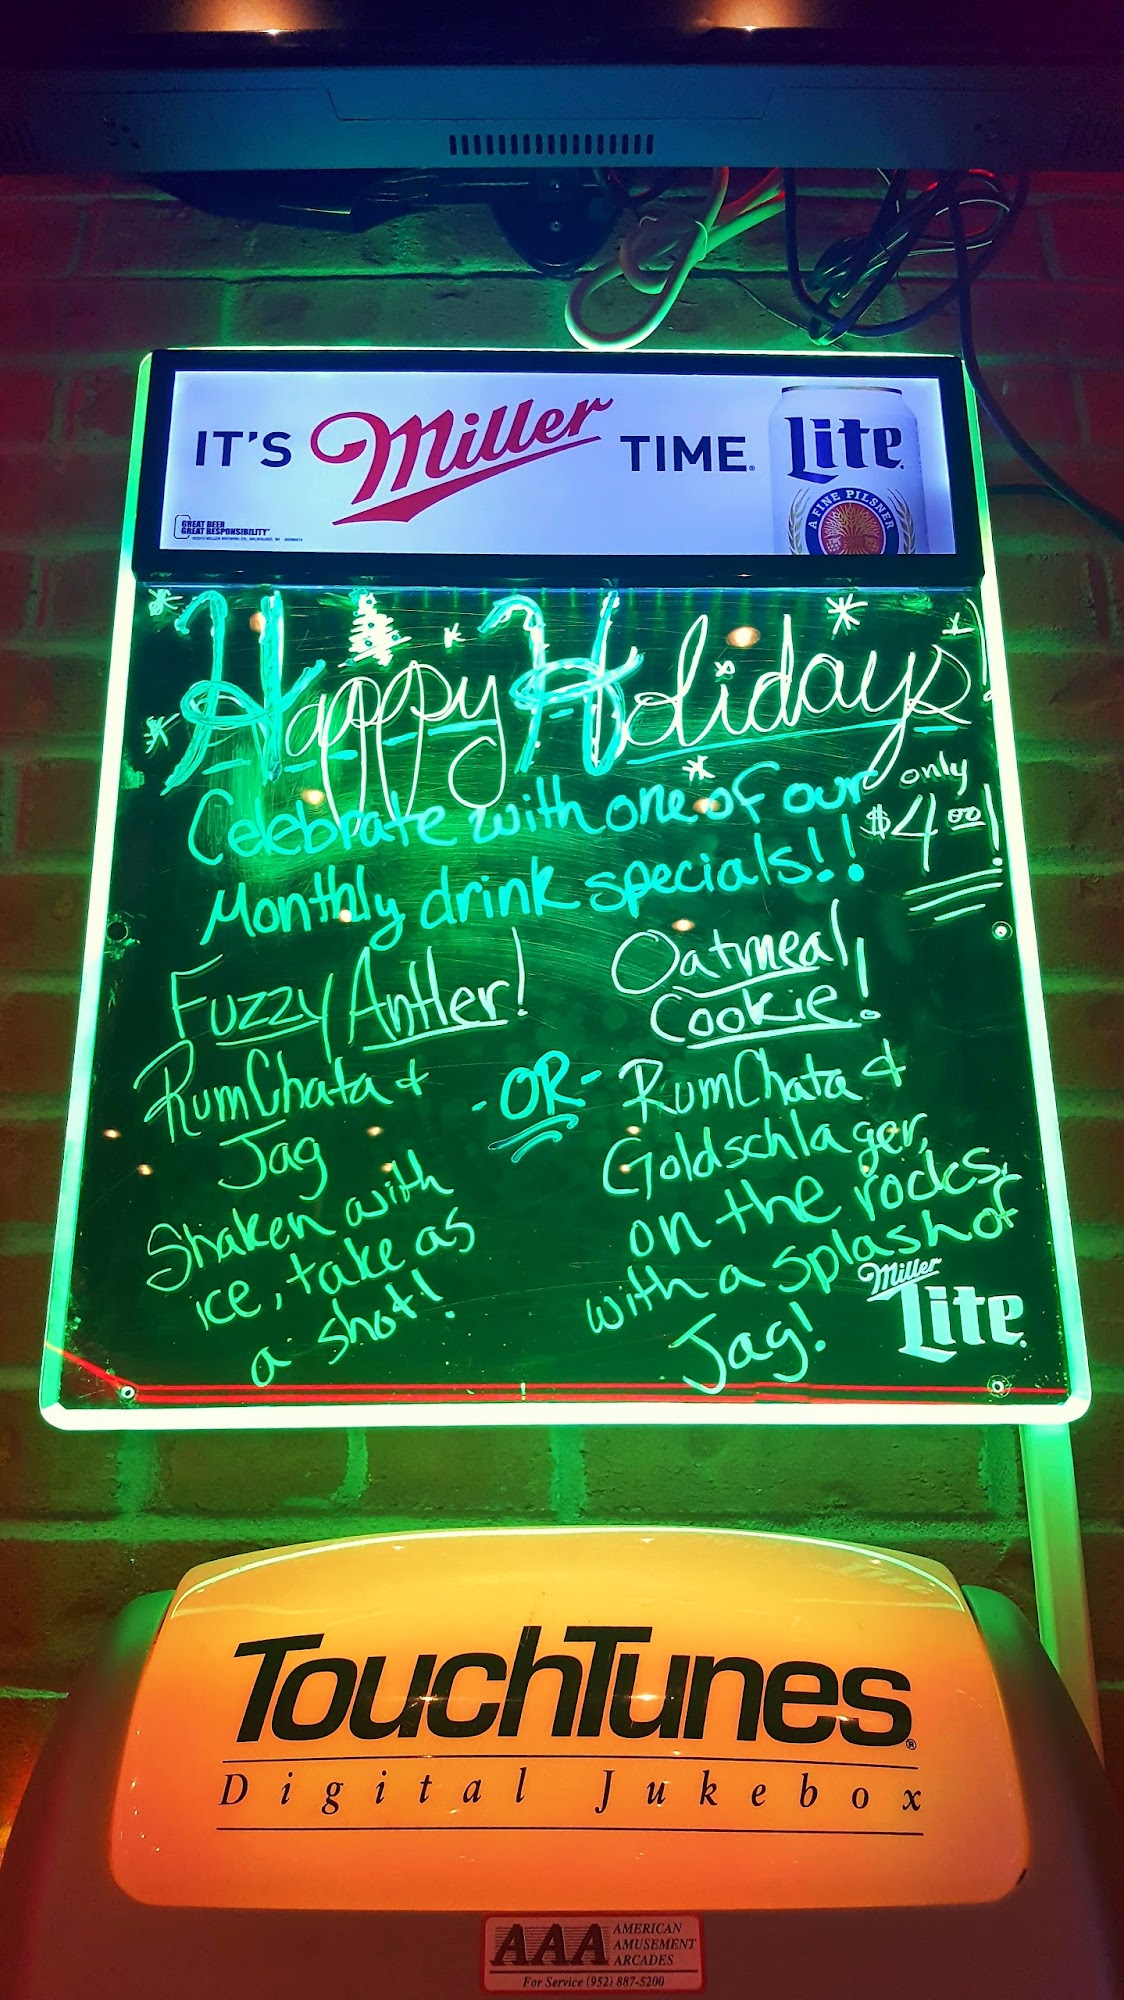 IT'S Miller TIME.
Lite
A FINE PILSNER
GREAT BEER
GREAT RESPONSIBILITY
Happy Holidays!
Celebrate with one of our
Monthly drink specials!!
only
$4.00!
Fuzzy Antler!
RumChata &
Jag
Shaken with
ice, take as
a shot!
-OR-
Oatmeal
Cookie!
RumChata &
Goldschlager,
on the rocks,
with a splash of
Jag!
Miller
Lite
TouchTunes®
Digital Jukebox
AAA AMERICAN
AMUSEMENT
ARCADES
For Service (952) 887-5200